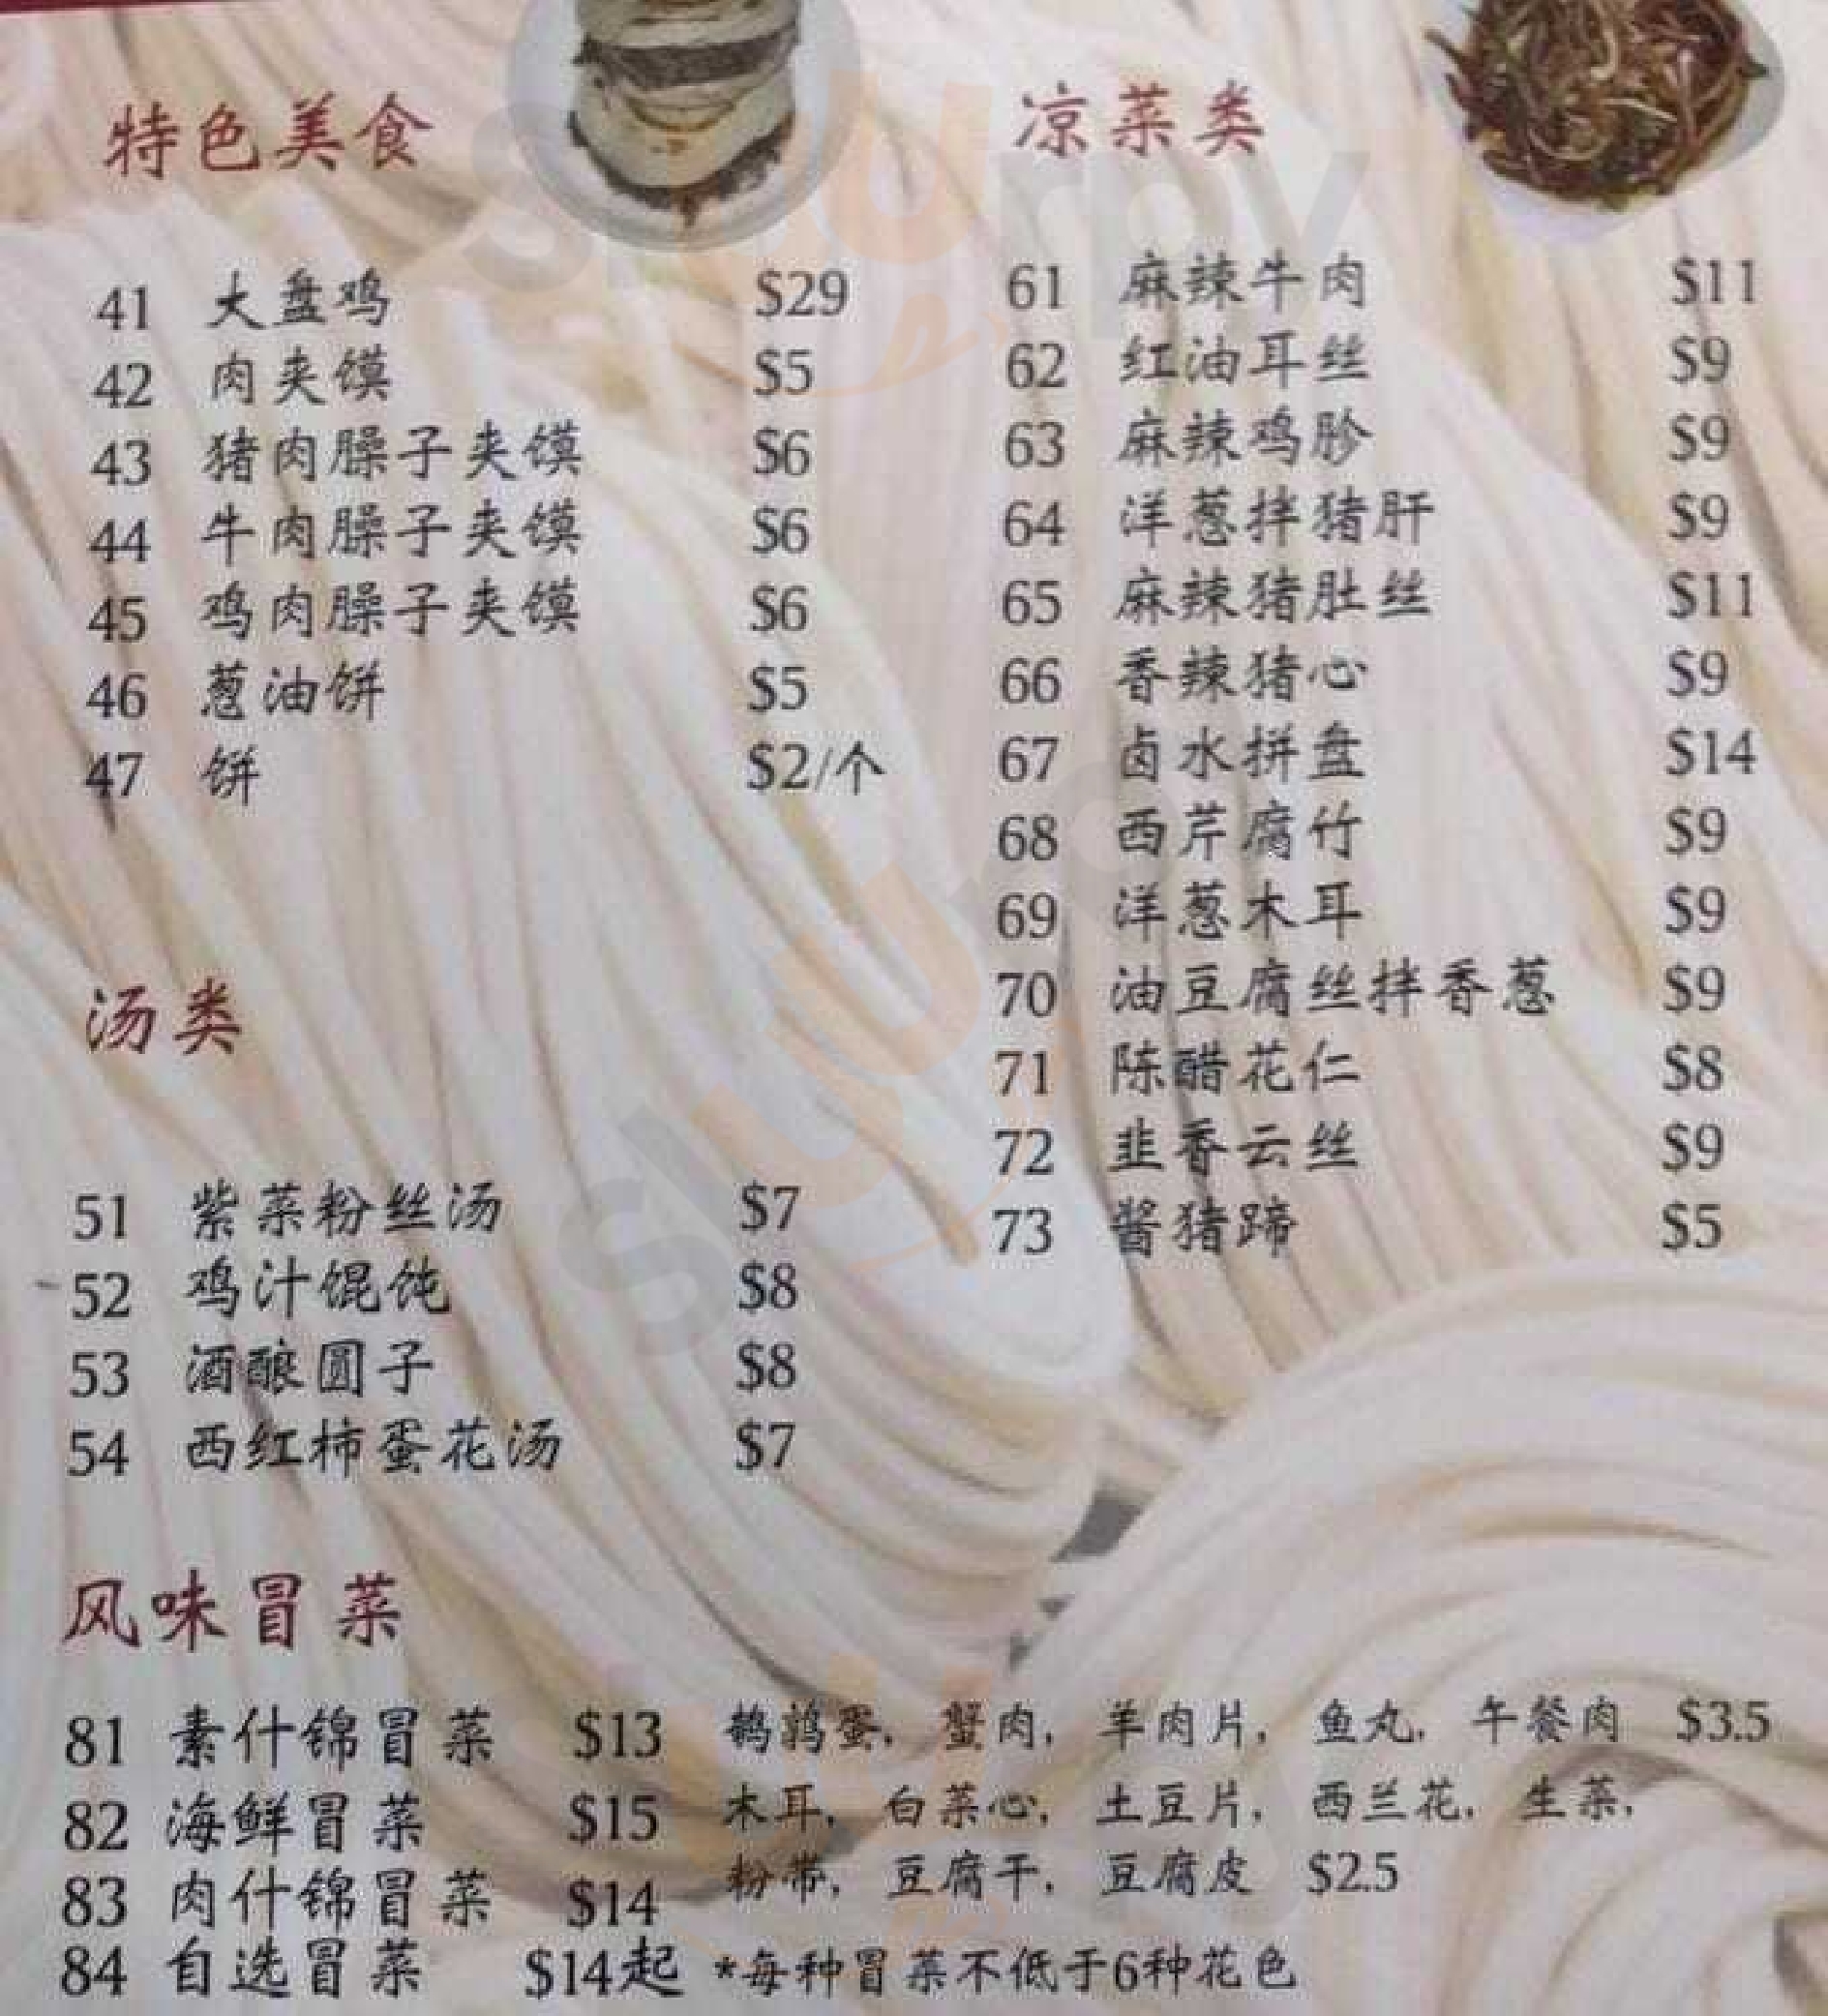 特色美食
41 大盘鸡 $29
42 肉夹馍 $5
43 猪肉臊子夹馍 $6
44 牛肉臊子夹馍 $6
45 鸡肉臊子夹馍 $6
46 葱油饼 $5
47 饼 $2/个
汤类
51 紫菜粉丝汤 $7
52 鸡汁馄饨 $8
53 酒酿圆子 $8
54 西红柿蛋花汤 $7
凉菜类
61 麻辣牛肉 $11
62 红油耳丝 $9
63 麻辣鸡胗 $9
64 洋葱拌猪肝 $9
65 麻辣猪肚丝 $11
66 香辣猪心 $9
67 卤水拼盘 $14
68 西芹腐竹 $9
69 洋葱木耳 $9
70 油豆腐丝拌香葱 $9
71 陈醋花仁 $8
72 韭香云丝 $9
73 酱猪蹄 $5
风味冒菜
81 素什锦冒菜 $13
82 海鲜冒菜 $15
83 肉什锦冒菜 $14
84 自选冒菜 $14起
鹌鹑蛋, 蟹肉, 羊肉片, 鱼丸, 午餐肉 $3.5
木耳, 白菜心, 土豆片, 西兰花, 生菜,
粉带, 豆腐干, 豆腐皮 $2.5
*每种冒菜不低于6种花色
slurpy
slurpy